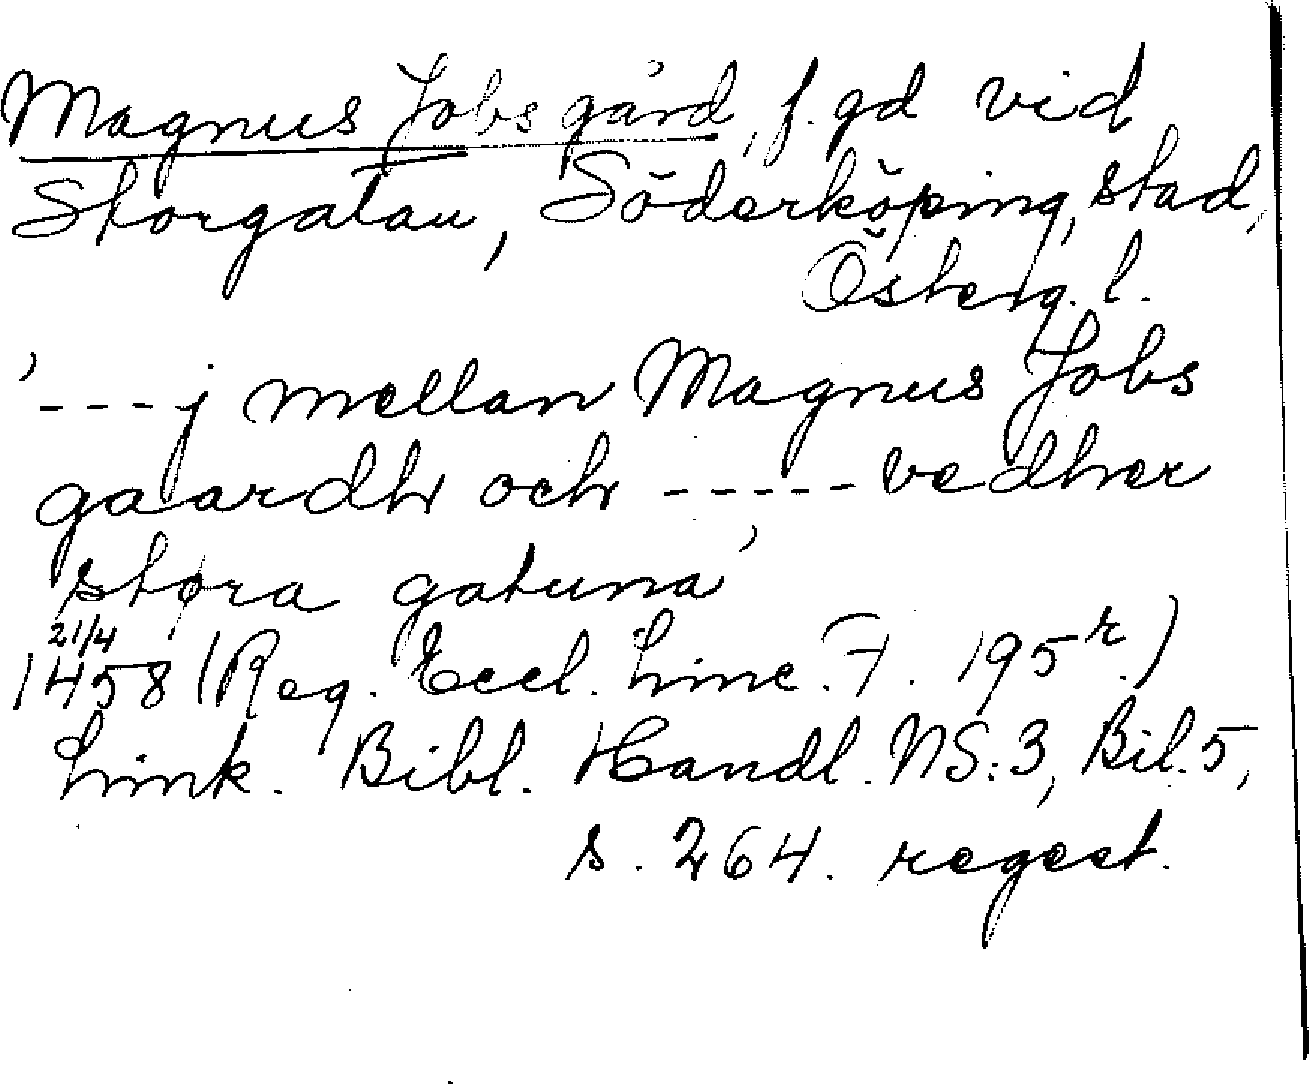 Magnus Jobs gård, f. gd vid
Storgatan, Söderköping, stad,
Österg. l.
'---j mellan Magnus Jobs
gaardh och ----- vedher
støra gatuna'
21/4
1458 (Reg. Eccl. Linc. F. 195r.)
Link. Bibl. Handl. NS:3, Bil. 5,
s. 264. regest.